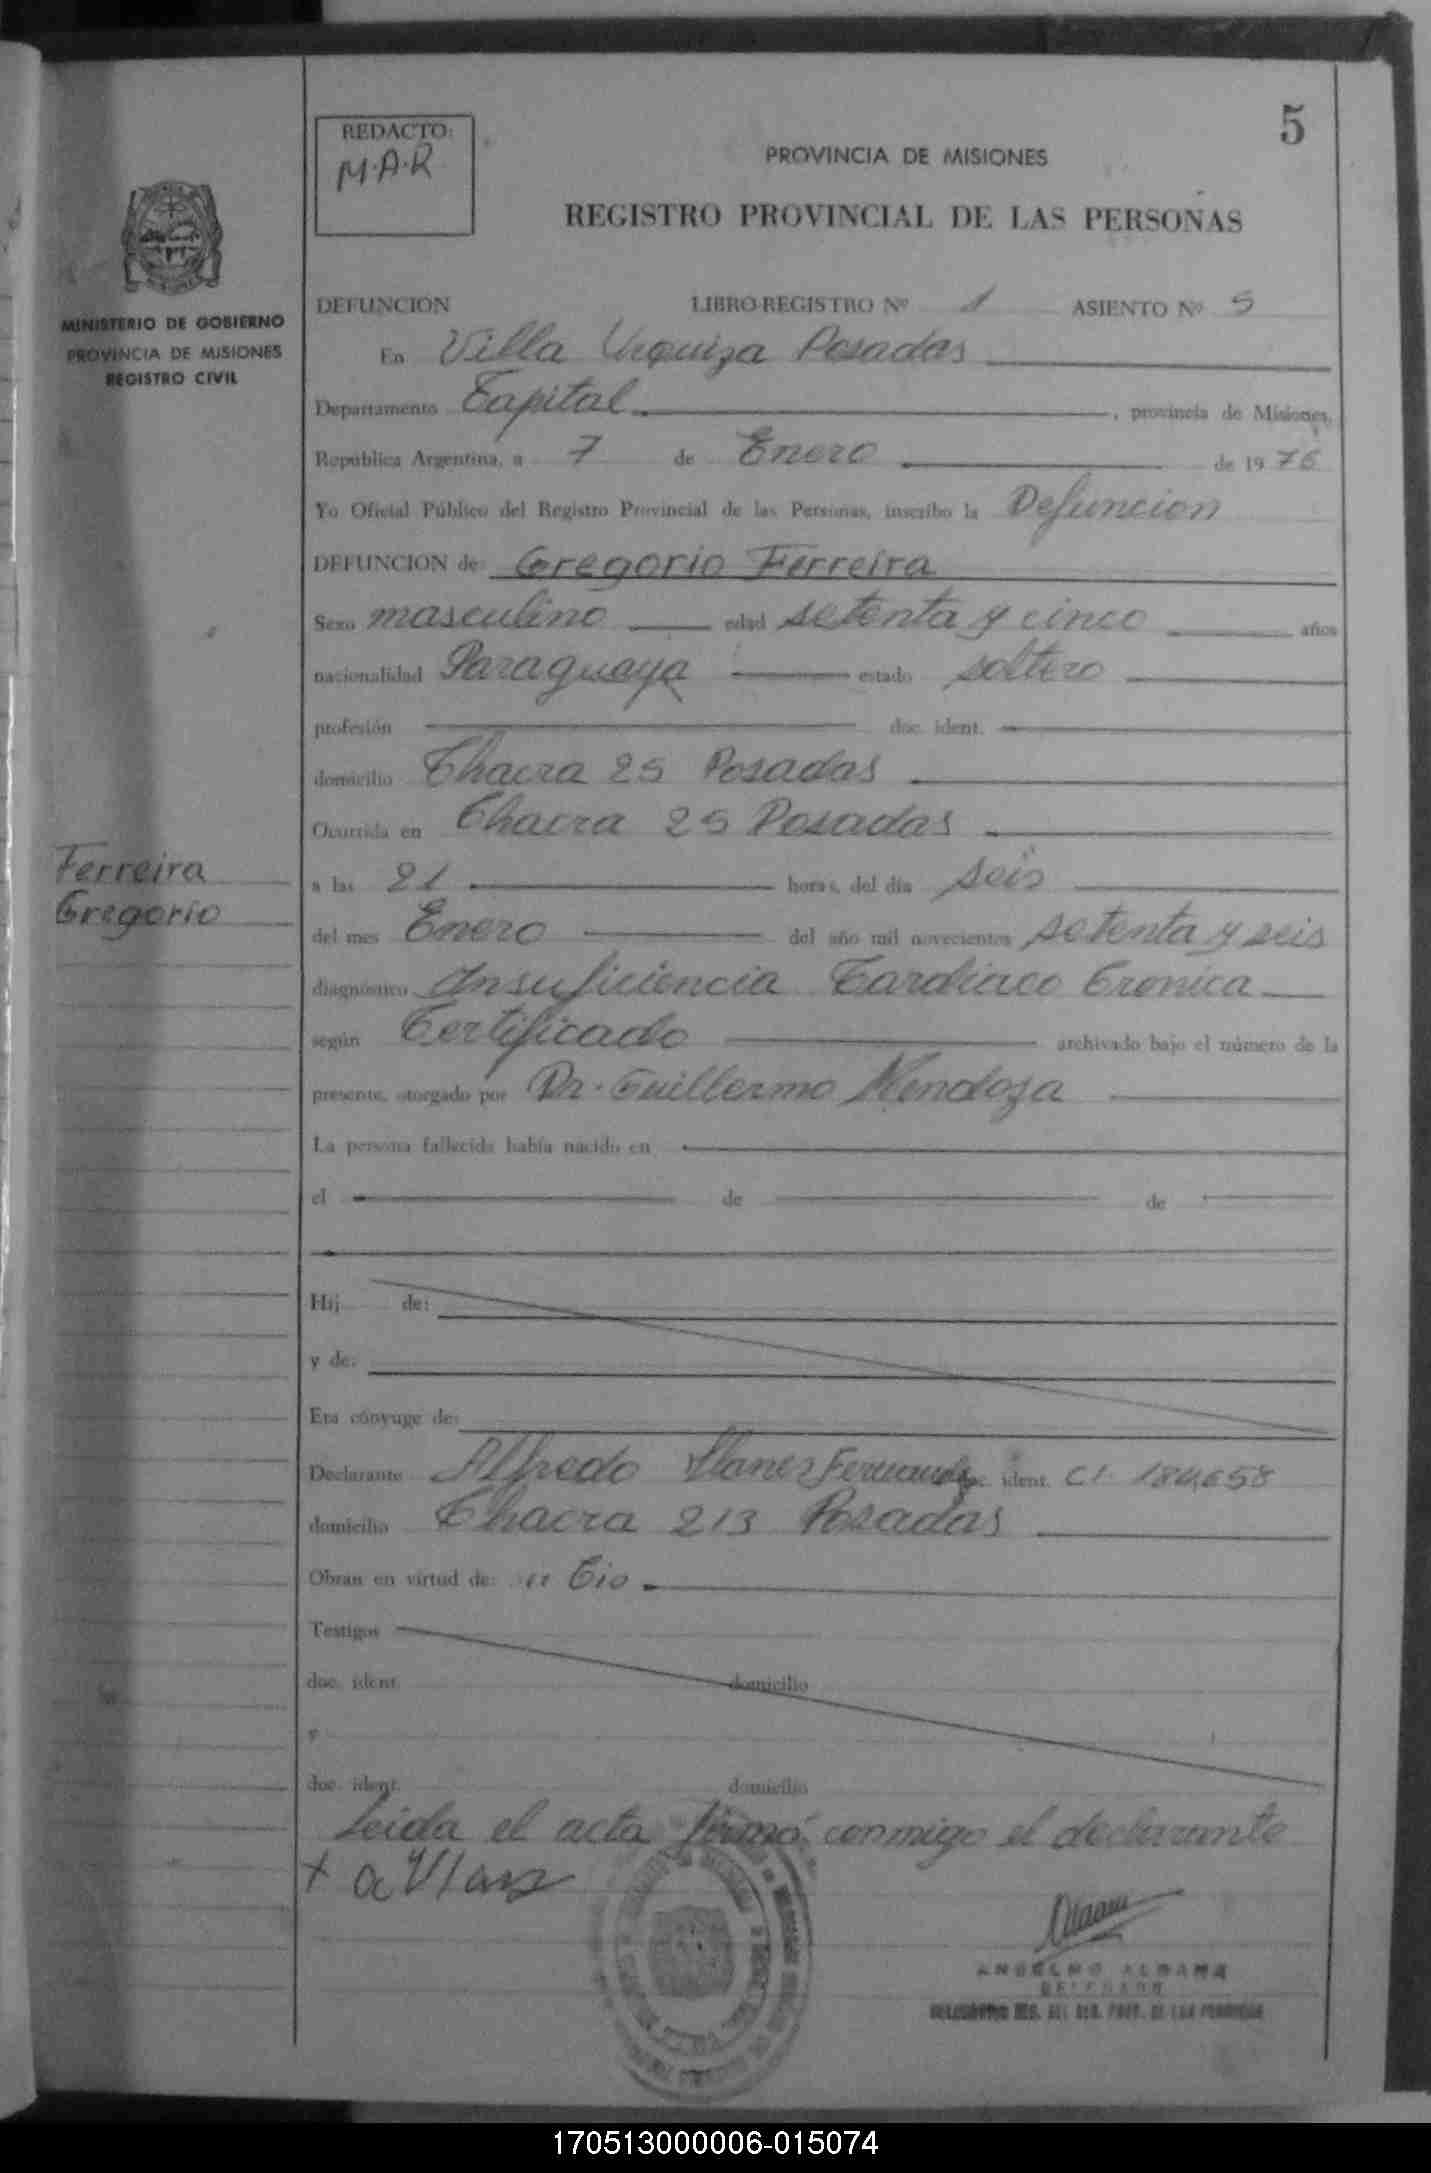 5
REDACTO:
M.A.R
PROVINCIA DE MISIONES
REGISTRO PROVINCIAL DE LAS PERSONAS
MINISTERIO DE GOBIERNO
PROVINCIA DE MISIONES
REGISTRO CIVIL
DEFUNCION LIBRO-REGISTRO Nº 1 ASIENTO Nº 5
En Villa Urquiza Posadas
Departamento Capital, provincia de Misiones,
República Argentina, a 7 de Enero de 1976
Yo Oficial Público del Registro Provincial de las Personas, inscribo la Defuncion
DEFUNCION de: Gregorio Ferreira
Sexo masculino edad setenta y cinco años
nacionalidad Paraguaya estado soltero
profesión doc. ident.
domicilio Chacra 25 Posadas
Ocurrida en Chacra 25 Posadas
Ferreira
Gregorio
a las 21 horas, del día seis
del mes Enero del año mil novecientos setenta y seis
diagnóstico Insuficiencia Cardiaco Cronica
según Certificado archivado bajo el número de la
presente, otorgado por Dr. Guillermo Mendoza
La persona fallecida había nacido en
el de de
Hij de:
y de:
Era cónyuge de:
Declarante Alfredo Llanes Fernandez doc. ident. C.I. 184,658
domicilio Chacra 213 Posadas
Obran en virtud de: Tio
Testigos
doc. ident. domicilio
y
doc. ident. domicilio
Leida el acta firmó conmigo el declarante
ANSELMO ALDANA
170513000006-015074